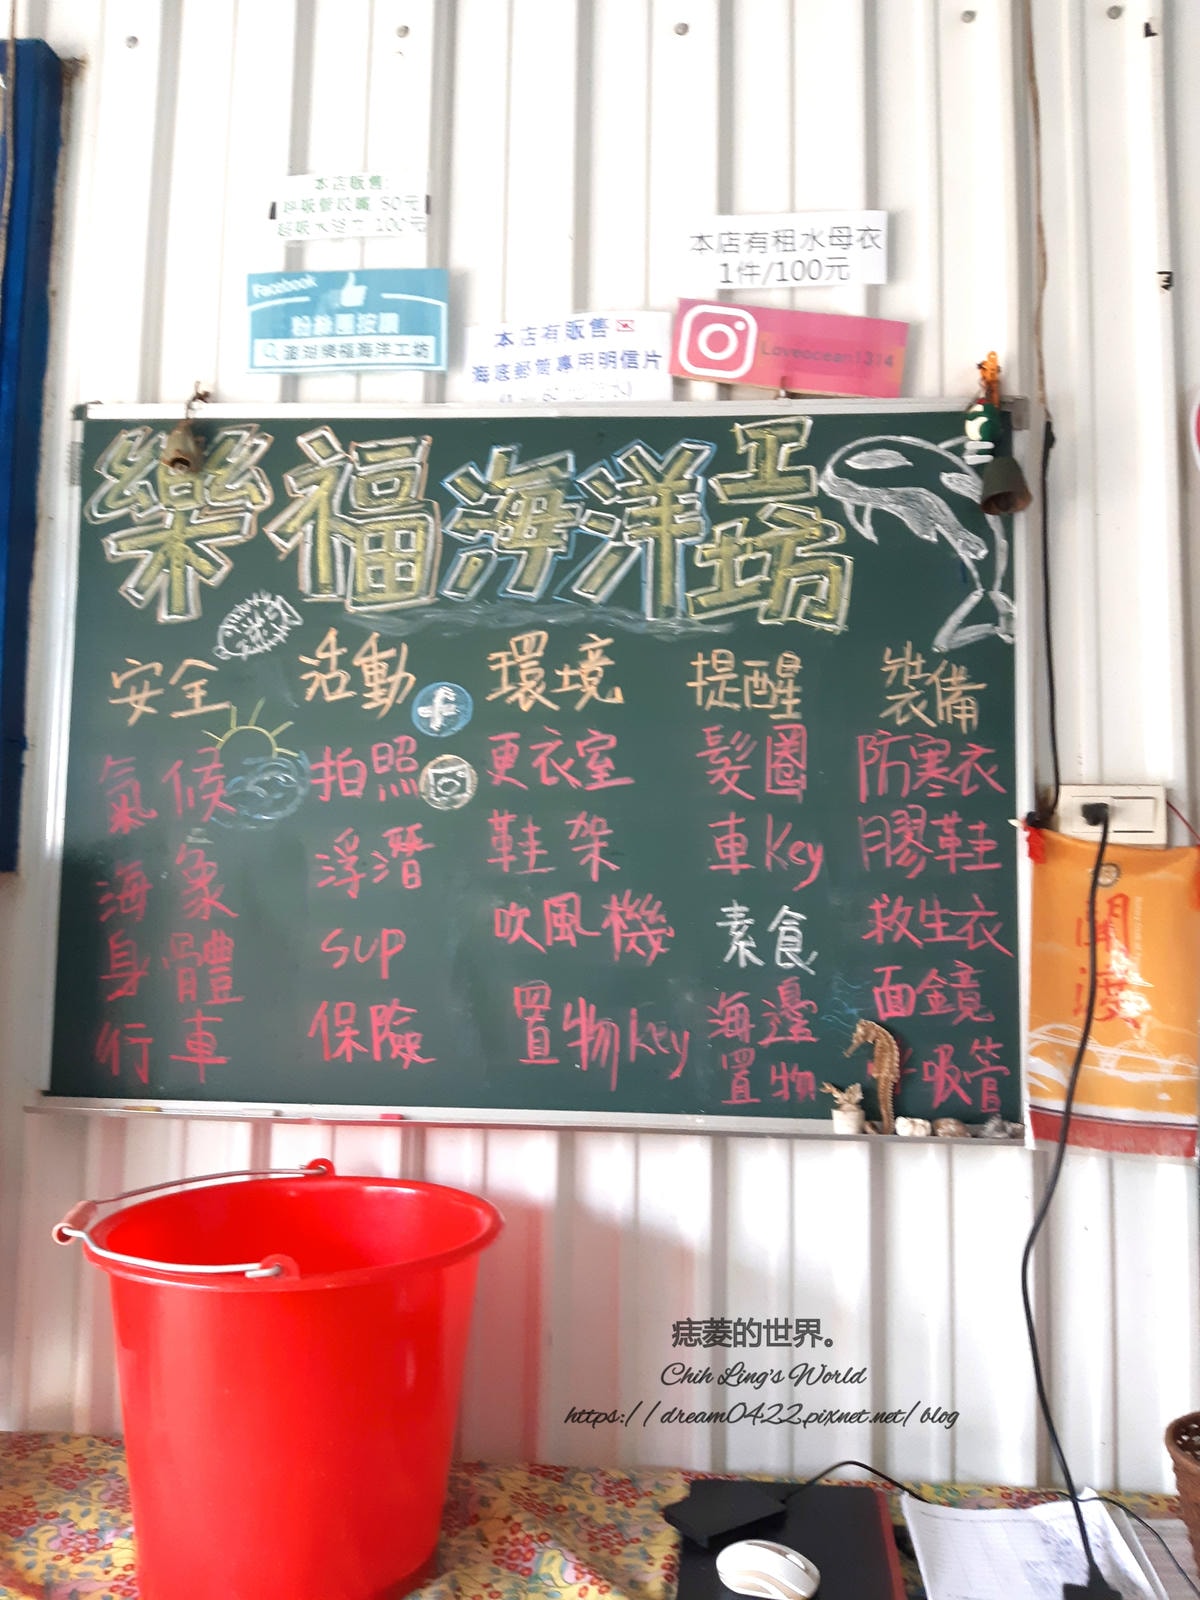 本店販售:
呼吸管咬嘴 50元
100元
本店有租水母衣
1件/100元
Facebook
粉絲團按讚
澎湖樂福海洋工坊
本店有販售
海底郵筒專用明信片
Loveocean1314
樂福海洋工坊
安全
氣候
海象
身體
行車
活動
拍照
浮潛
SUP
保險
環境
更衣室
鞋架
吹風機
置物key
提醒
髮圈
車Key
素食
海邊
置物
裝備
防寒衣
膠鞋
救生衣
面鏡
呼吸管
痣菱的世界。
Chih Ling's World
https://dream0422.pixnet.net/blog